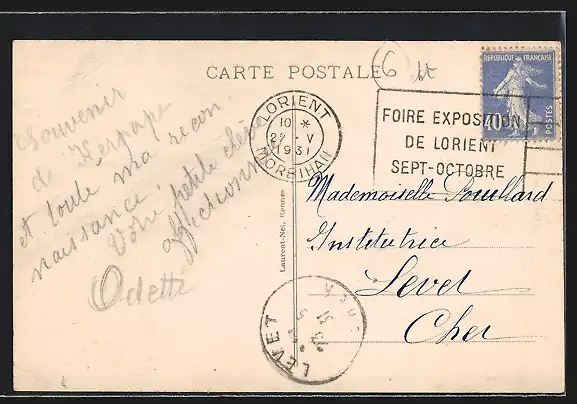 CARTE POSTALE
6
Souvenir
de Kerpape
et toute ma recon
naissance.
Votre petite élève
affectionnée
Odette
LORIENT
10 *
27 · V
1931
MORBIHAN
FOIRE EXPOSITION
DE LORIENT
SEPT-OCTOBRE
REPUBLIQUE FRANÇAISE
40c
POSTES
Laurent-Nel, Rennes
Mademoiselle Pouillard
Institutrice
Levet
Cher
LEVET
CHER
5
31